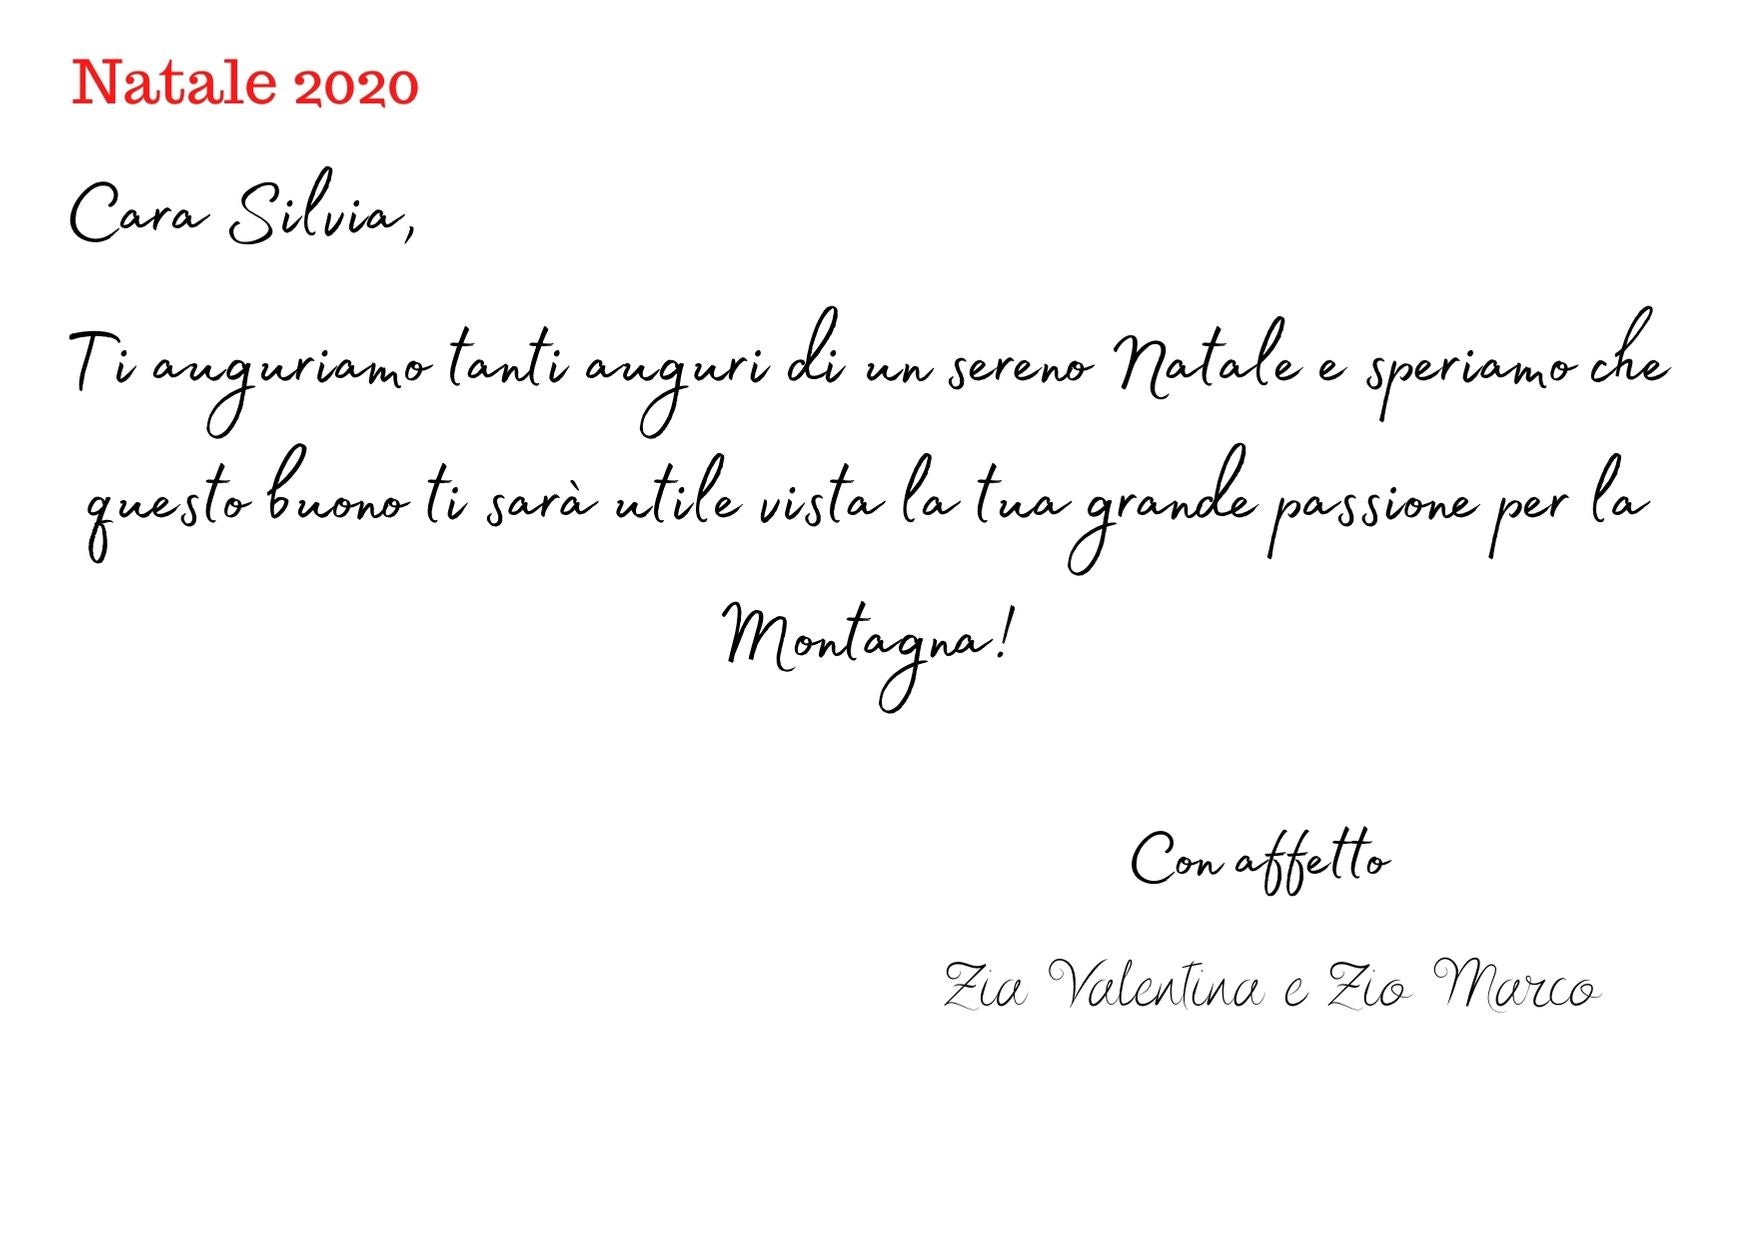 Natale 2020
Cara Silvia,
Ti auguriamo tanti auguri di un sereno Natale e speriamo che
questo buono ti sarà utile vista la tua grande passione per la
Montagna!
Con affetto
Zia Valentina e Zio Marco